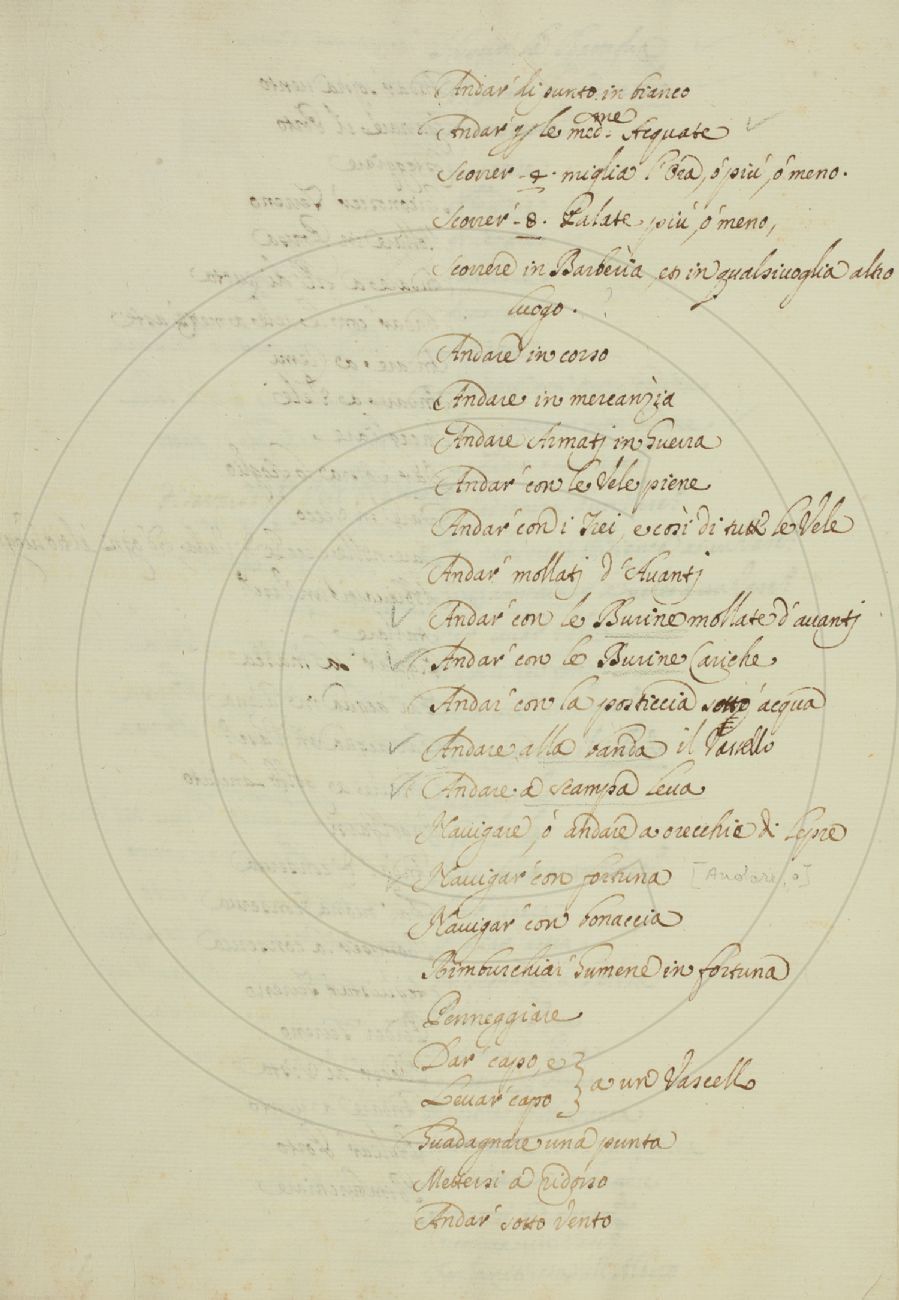 Andar' di punto in bianco
Andar' p le med.me Acquate
Scorrer - 4 - miglia l'Ora, ó piú, ó meno.
Scorrer' - 8 - Palate piú, ó meno,
Scorrere in Barberia, et in qualsivoglia altro
luogo.
Andare in corso
Andare in mercanzia
Andare Armatj in Guerra
Andar' con le Vele piene
Andar' con i Trei, e così di tutte le Vele
Andar' mollatj d'Avantj
Andar' con le Burine mollate d'avantj
Andar' con le Burine Cariche
Andar' con la posticcia sotto acqua
Andare alla banda il Vascello
Andare a scampa leva
Navigare, ó andare a orecchie di lepre
Navigar' con fortuna [Andare, o]
Navigar' con bonaccia
Rimburchiar' Gumene in fortuna
Penneggiare
Dar' capo, e
Levar' capo } a un Vascello
Guadagnare una punta
Mettersi a ridosso
Andar' sotto Vento